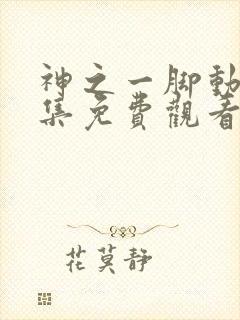 神之一脚動
集免費觀看
花莫靜